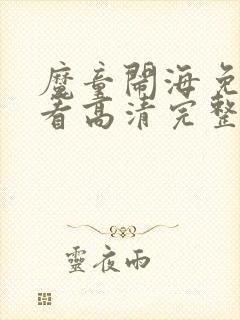 魔童鬧海免
看高清完整
靈夜雨